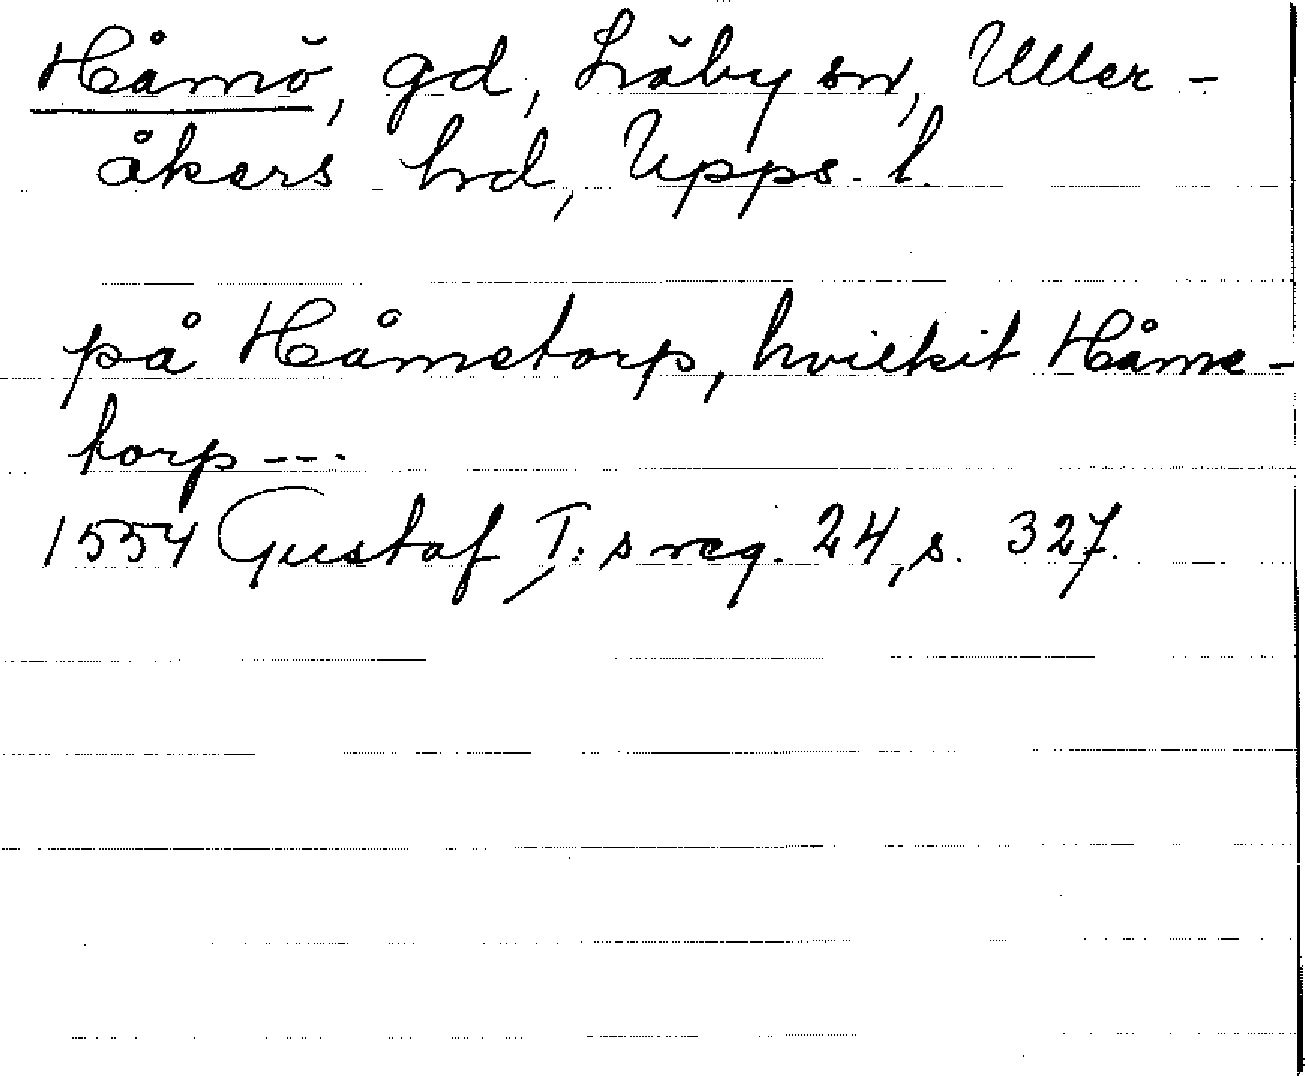 Håmö, gd, Läby sn, Uller-
åkers hrd, Upps. l.
på Håmetorp, hvilkit Håme-
torp ---
1554 Gustaf I:s reg. 24, s. 327.